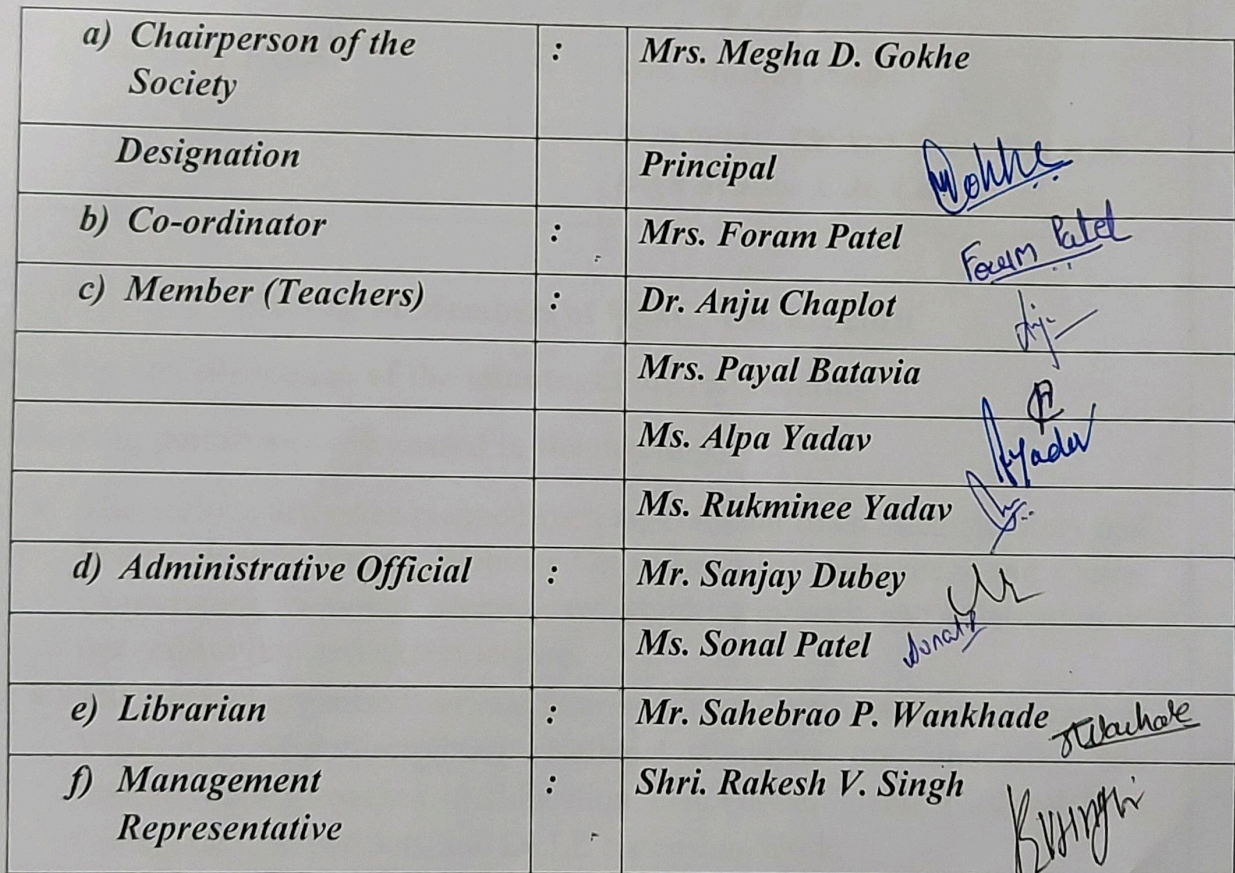 a) Chairperson of the : Mrs. Megha D. Gokhe
Society
Designation Principal Gokhe
b) Co-ordinator : Mrs. Foram Patel Foram Patel
c) Member (Teachers) : Dr. Anju Chaplot
Mrs. Payal Batavia
Ms. Alpa Yadav AYadav
Ms. Rukminee Yadav
d) Administrative Official : Mr. Sanjay Dubey
Ms. Sonal Patel SonalP
e) Librarian : Mr. Sahebrao P. Wankhade
f) Management : Shri. Rakesh V. Singh RVSingh
Representative